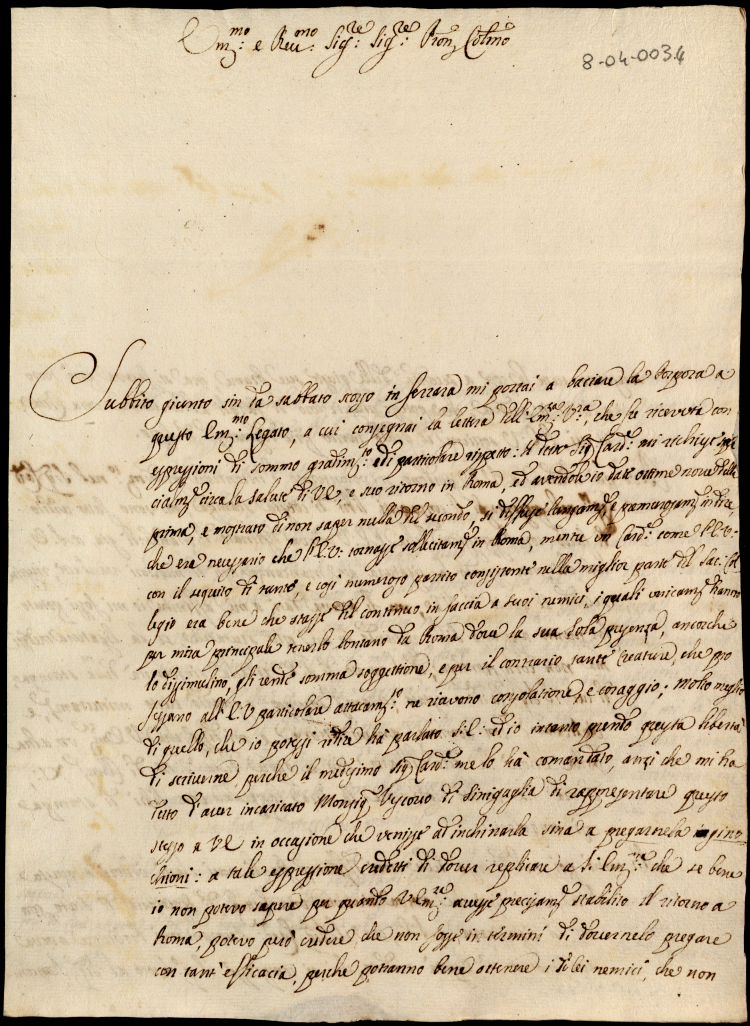 Em.mo e Reu.mo Sig.re Sig.re Pron Colmo
8-04-003.4
Subbito giunto sin da sabbato scorso in ferrara mi portai a baciare la Porpora a
questo Em.mo Legato, a cui consegnai la lettera dell'Em.za V.ra, che fu riceuuta con
espressioni di sommo gradim.to e di particolare rispetto: Il detto Sig. Card. mi richiese
cialm. circa la salute di VE, e suo ritorno in Roma, ed auendole io date ottime noue della
prima, e mostrato di non saper nulla del secondo, si diffuse lungam. e premurosam. in dire,
che era necessario che l'E.V. tornasse sollecitam. in Roma, mentre un Card. come l'E.V.
con il seguito di tante, e così numeroso partito consistente nella miglior parte del Sac. Col
legio era bene che stasse del continuo in faccia a suoi nemici, i quali unicam. hanno
per mira principale tenerlo lontano da Roma doue la sua sola presenza, ancorche
lo dissimulino, gli rende somma soggettione, e per il contrario tante Creature, che pro
fessano all'E.V particolare attacam.to ne riceuono consolatione, e coraggio; Molto meglio
di quello, che io potessi ridire hà parlato S.E: ed io intanto prendo questa libertà
di scriuerne perche il medesimo Sig. Card. me lo hà comandato, anzi che mi ha
detto d'auer incaricato Monsig. Vescouo di Sinigaglia di rappresentare questo
stesso a VE in occasione che venisse ad inchinarla sina a pregarnela inginoc
chioni: a tale espressione credetti di douer replicare a S. Em.za che se bene
io non poteuo sapere per quando V Em.za auesse precisam. stabilito il ritorno a
Roma, poteuo però credere che non fosse in termini di douernelo pregare
con tant'efficacia, perche potranno bene ottenere i di lei nemici, che non